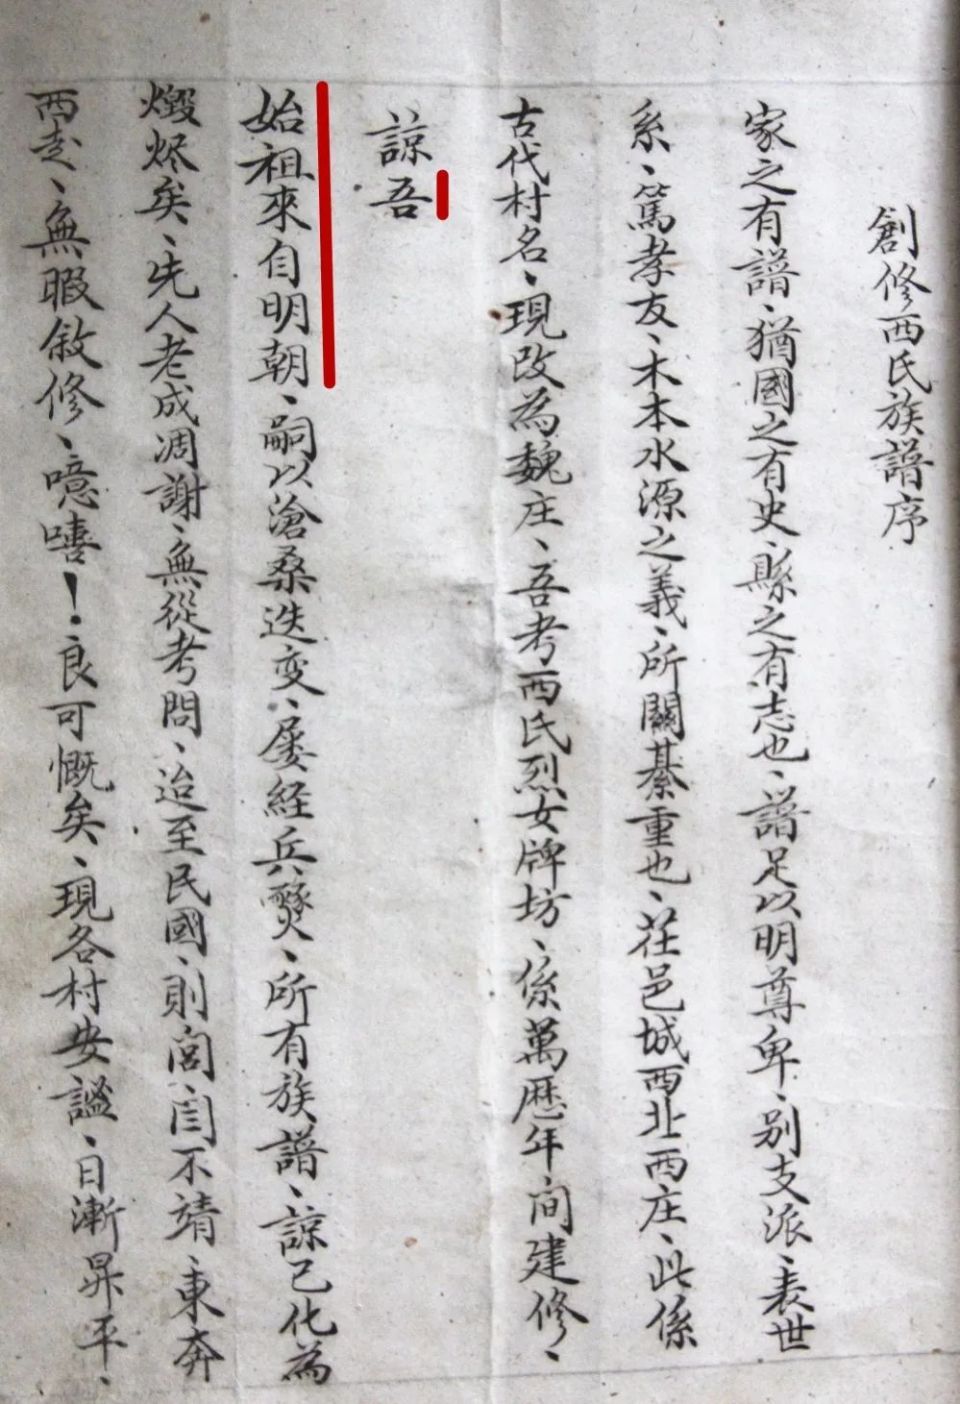 創修西氏族譜序
家之有譜、猶國之有史、縣之有志也、譜足以明尊卑、别支派、表世
系、篤孝友、木本水源之義、所關綦重也、茌邑城西北西庄、此係
古代村名、現改為魏庄、吾考西氏烈女牌坊、係萬歷年间建修、
諒吾
始祖來自明朝、嗣以滄桑迭变、屡経兵燹、所有族譜、諒已化為
燬烬矣、先人老成凋謝、無從考問、迨至民國、則閭、閆不靖、東奔
西走、無暇敘修、噫嘻！良可慨矣、現各村安謐、日漸昇平、